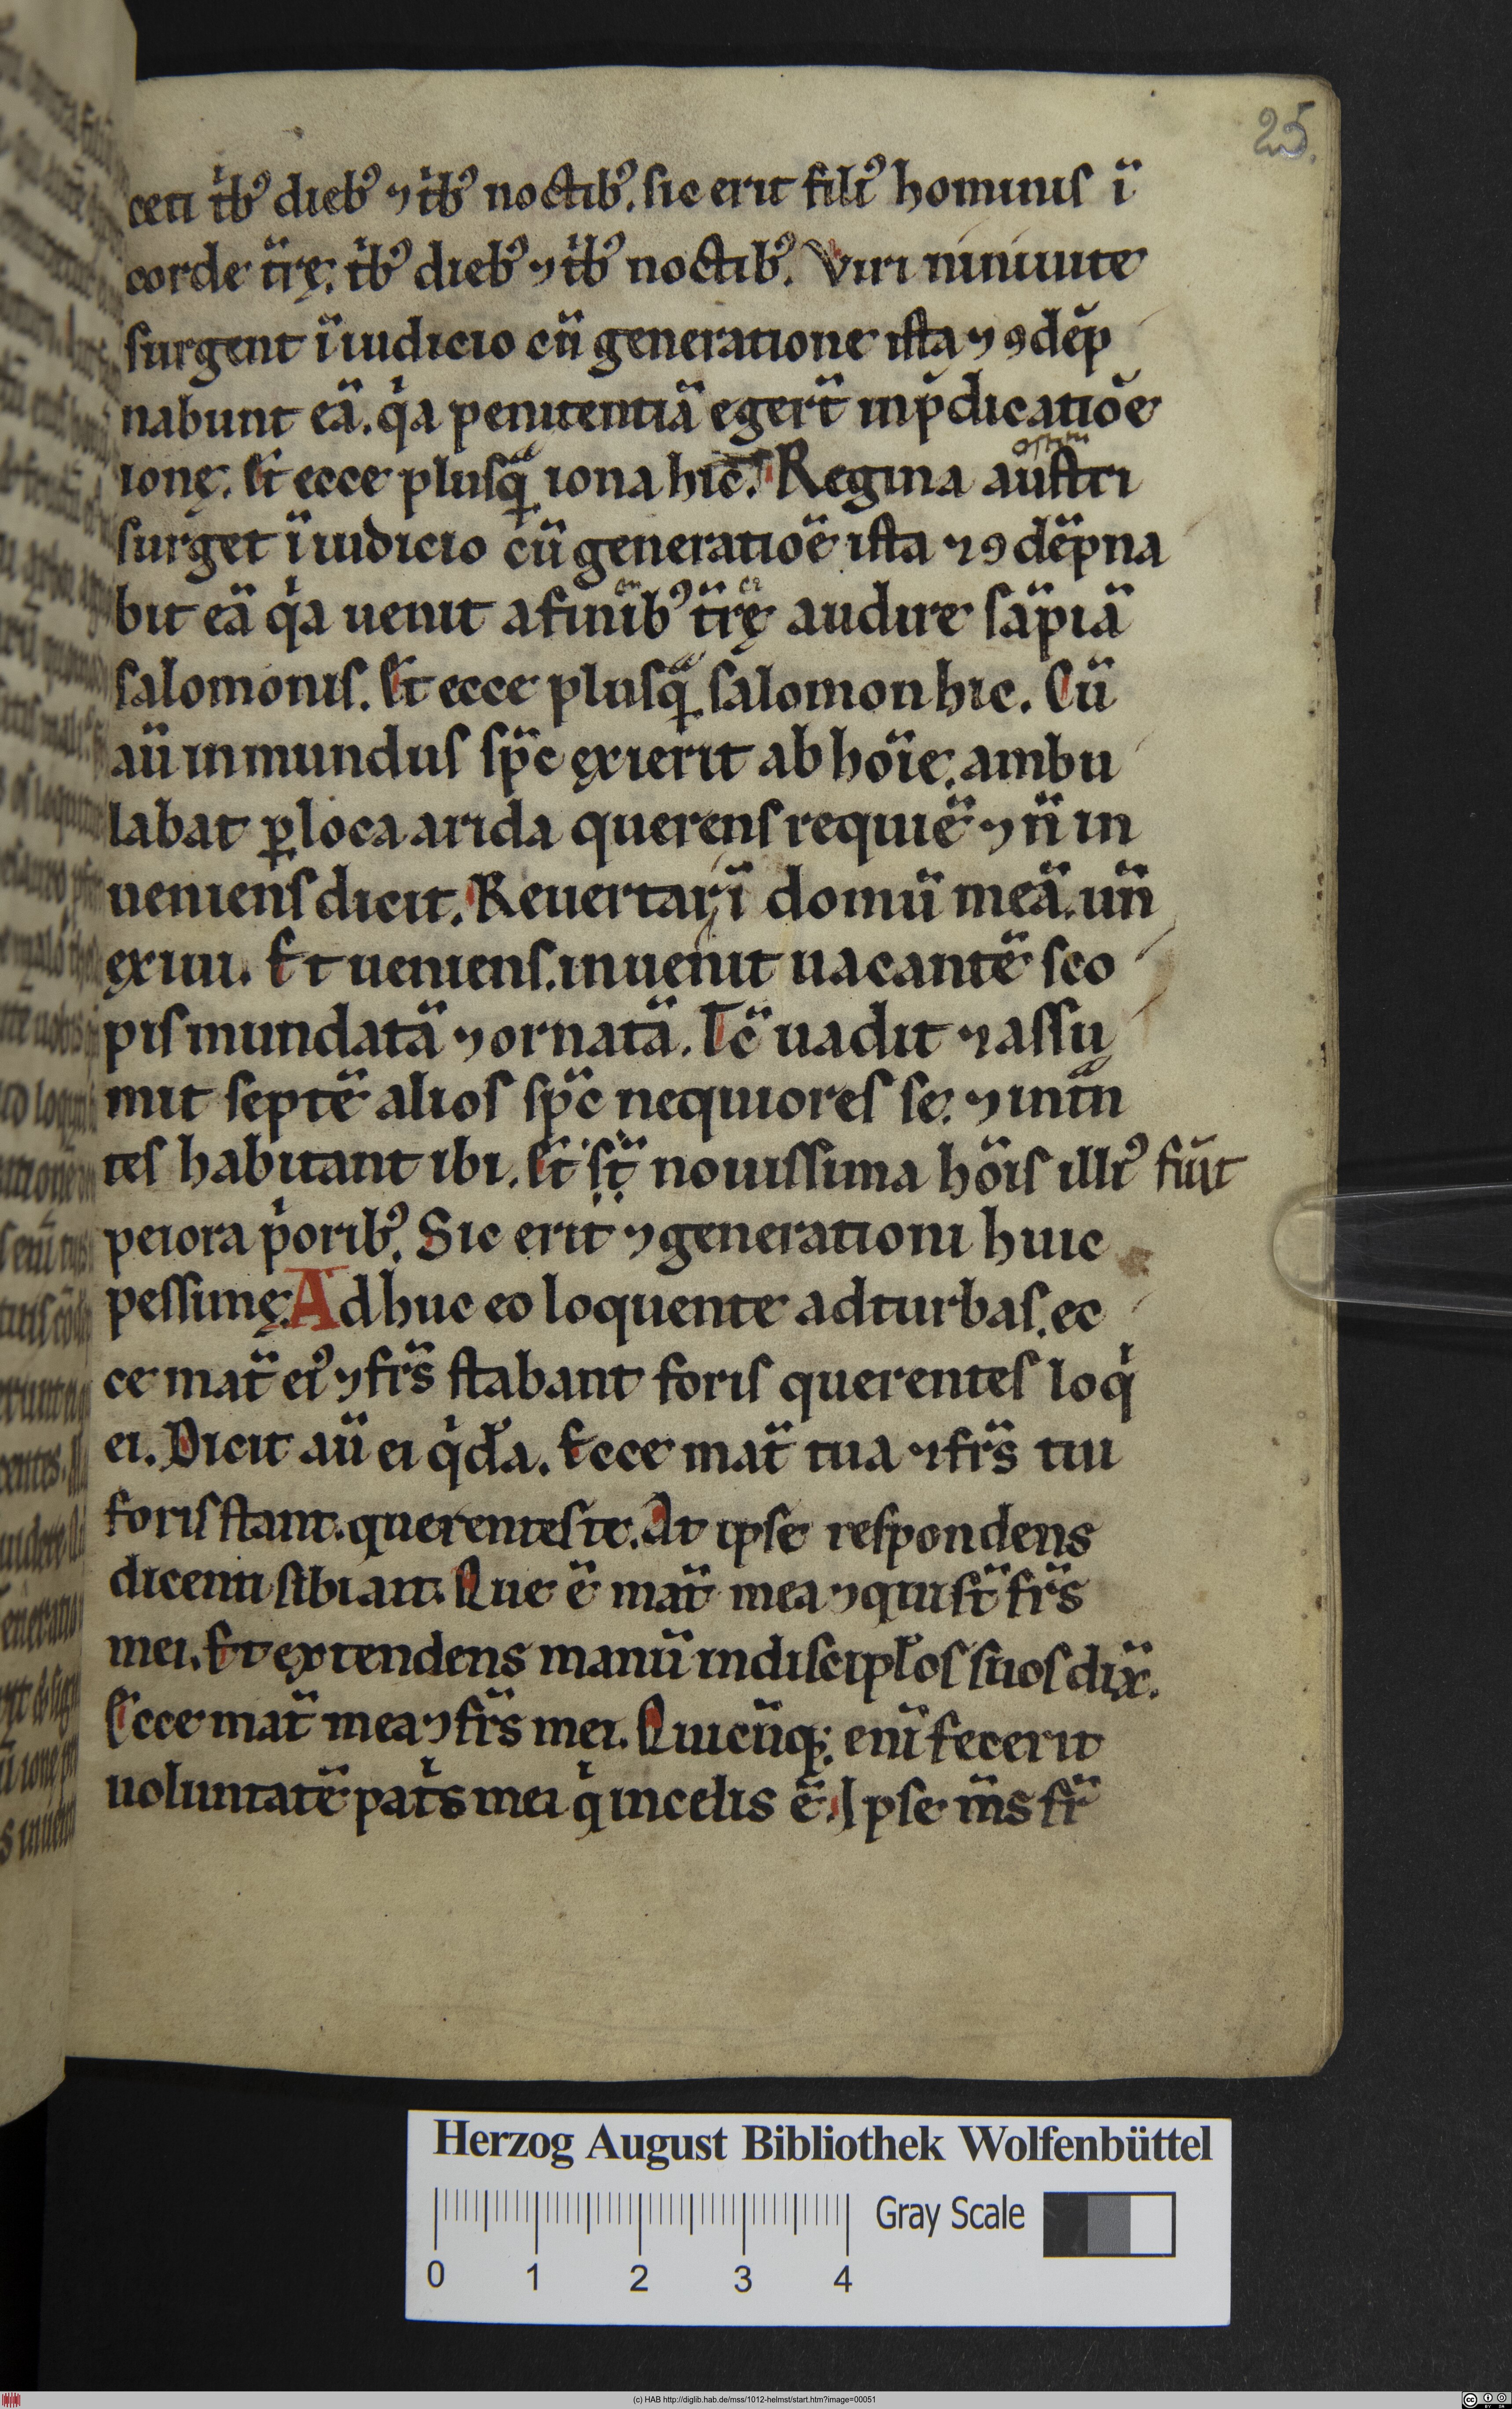 25.
ceti t̄bꝰ diebꝰ ⁊ t̄bꝰ noctibꝰ. sic erit filiꝰ hominis ī
corde tr̄ę. t̄bꝰ diebꝰ ⁊ t̄bꝰ noctibꝰ. Viri niniuite
surgent ī iudicio cū generatione ista ⁊ ꝯdēp
nabunt eā. qͥa penitentiā egert̄ in p̄dicatiōe
ionę. Et ecce plusqᷓ iona hic. Regina austri
surget ī iudicio cū generatiōe ista ⁊ ꝯdēpna
bit eā qͥa uenit a finibꝰ tr̄ę audire sāpiā
salomonis. Et ecce plusqᷓ salomon hic. Cū
aū inmundus sp̄c exierit ab hōie. ambu
labat ꝑ loca arida querens requiē ⁊ n̄ in
ueniens dicit. Reuertar ī domū meā. un̄
exiui. Et ueniens. inuenit uacantē sco
pis mundatā ⁊ ornatā. Tc̄ uadit ⁊ assu
mit septē alios sp̄c nequiores se. ⁊ intn̄
tes habitant ibi. Et st̄ nouissima hōis illiꝰ fūt
peiora pͥoribꝰ. Sic erit ⁊ generationi huic
pessimę. Adhuc eo loquente ad turbas. ec
ce mat̄ eiꝰ ⁊ fr̄s stabant foris querentes loqͥ
ei. Dicit aū ei qͥda. Ecce mat̄ tua ⁊ fr̄s tui
foris stant. querentes te. At ipse respondens
dicenti sibi ait. Que ē mat̄ mea ⁊ qui st̄ fr̄s
mei. Et extendens manū in discipl̄os suos dix̄.
Ecce mat̄ mea ⁊ fr̄s mei. Quicūq; enī fecerit
uoluntatē patͥs mei qͥ in celis ē. Ipse m̄s fr̄
Herzog August Bibliothek Wolfenbüttel
Gray Scale
0 1 2 3 4
(c) HAB http://diglib.hab.de/mss/1012-helmst/start.htm?image=00051